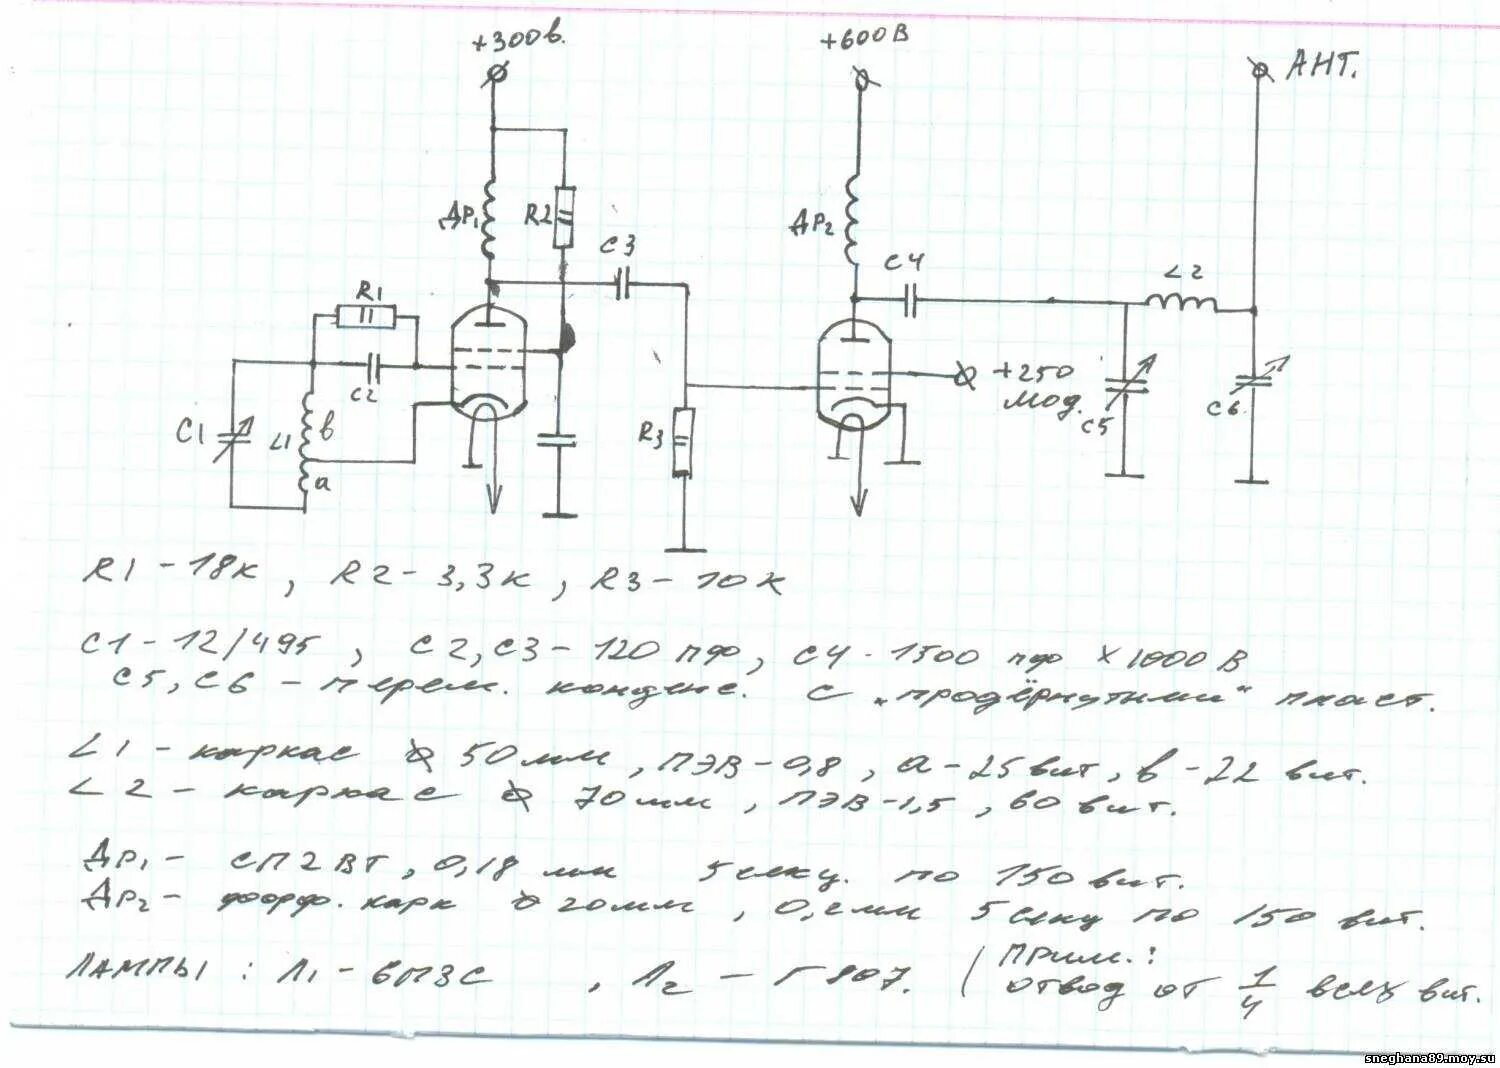 +300в.
+600В
АНТ.
ДР1
R2
C3
ДР2
C4
L2
R1
C2
C1
L1
в
а
R3
+250
мод.
C5
C6
R1 - 18к , R2 - 3,3к , R3 - 10 К
C1 - 12/495 , C2, C3 - 120 пф, C4 - 1500 пф х 1000 В
C5, C6 - перем. конденс. с „продёрнутыми“ пласт.
L1 - каркас ⌀ 50 мм , ПЭВ - 0,8 , а - 25 вит , в - 22 вит.
L2 - каркас ⌀ 70 мм , ПЭВ-1,5 , 60 вит.
ДР1 - СП 2 ВТ , 0,18 мм 5 секц. по 150 вит.
ДР2 - форф. карк ⌀ 20 мм , 0,2 мм 5 секц по 150 вит.
ЛАМПЫ : Л1 - 6П3С , Л2 - Г 807. ( прим. :
отвод от 1/4 всех вит.
sneghana89.moy.su